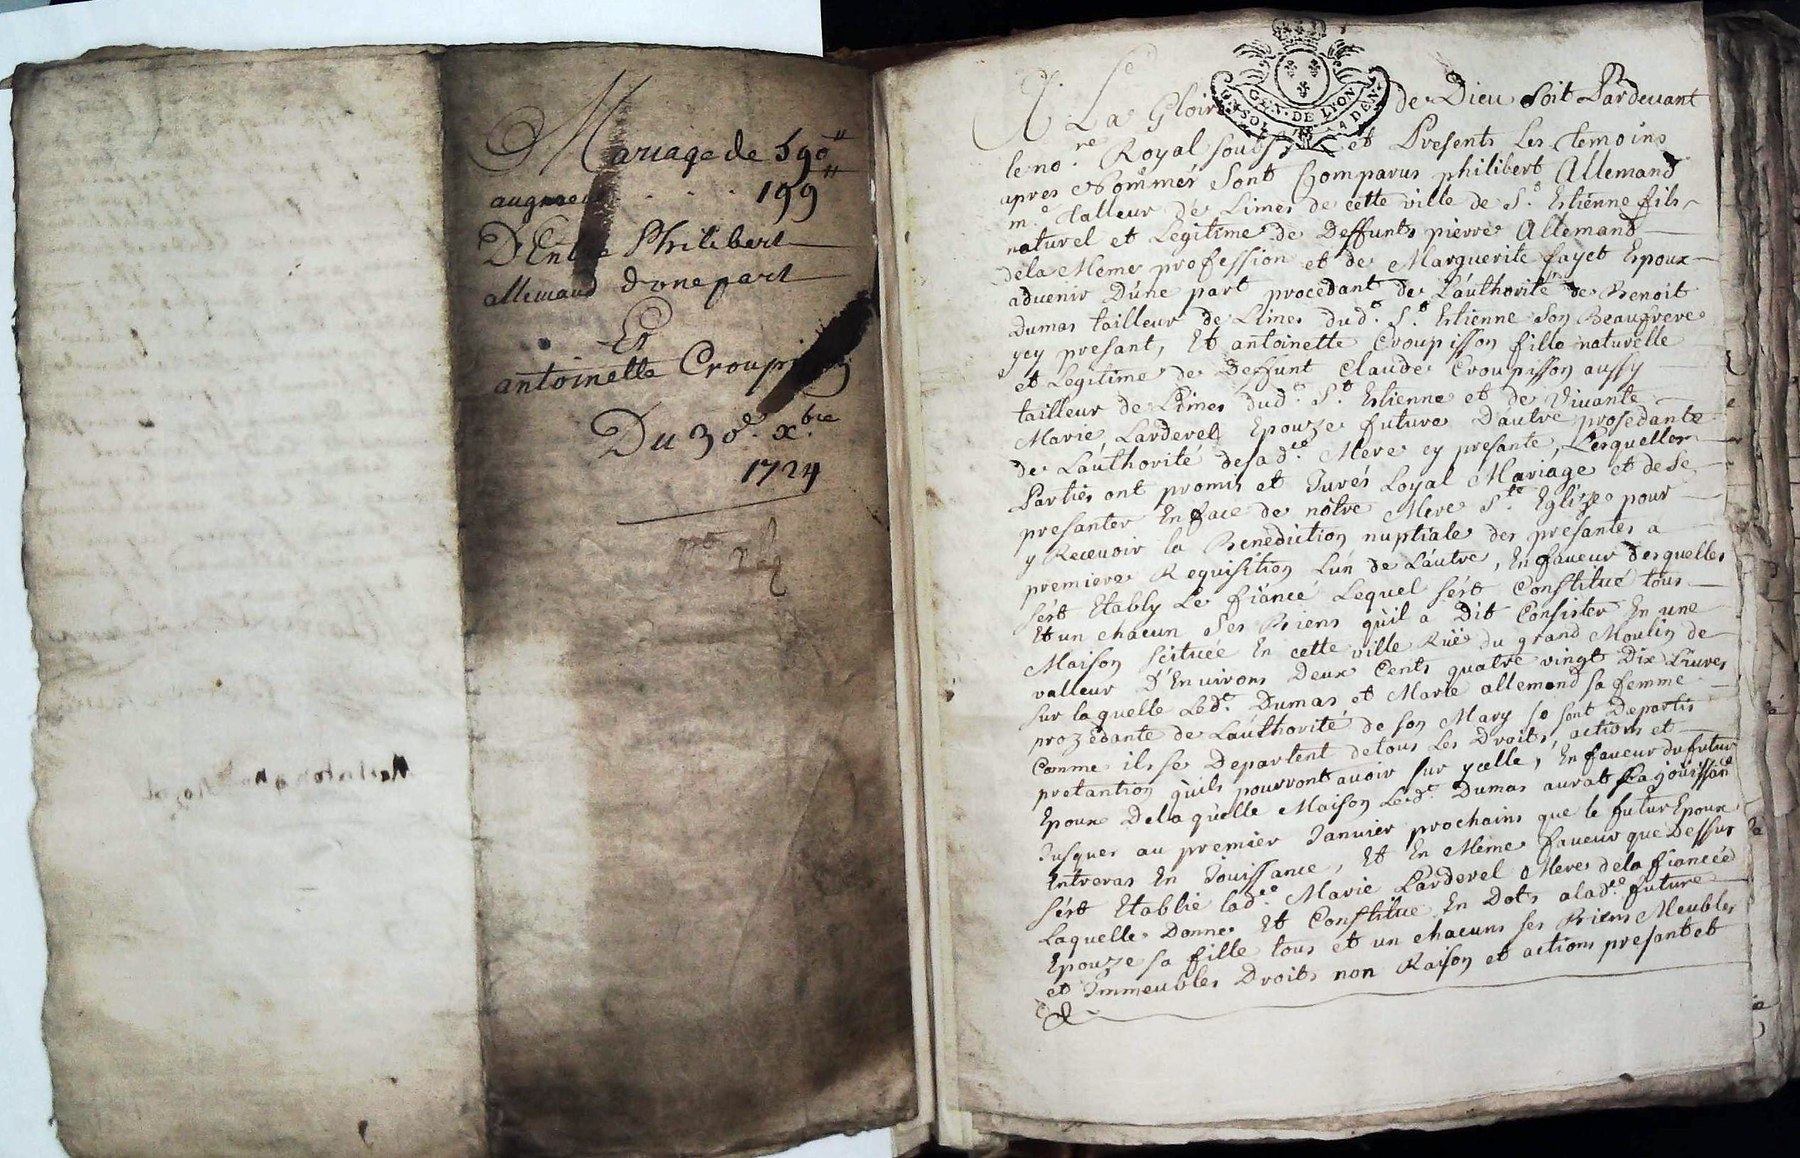 Mariage de 590"
augment . . . 199"
D'Entre Philibert
allemand d'one part
Et
antoinette Croupisson
Du 30e. xbre
1724
GEN. DE LION
UN SOL 4 DEN
A La Gloire de Dieu soit Pardevant
le no.re Royal soubs.né et Presents Les temoins
apres Nommés sont Comparus philibert Allemand
m.e talleur de Limes de cette ville de St. Estienne fils
naturel et Legitime de Deffunts pierre Allemand
dela Meme profession et de Marguerite fayet Epoux
advenir D'une part procedant de L'authorité de Benoit
Dumas tailleur de Limes dud.t St. Estienne son Beaufrere
ycy presant, Et antoinette Croupisson fille naturelle
et Legitime de Deffunt Claude Croupisson aussy
tailleur de Limes dud.t St. Estienne et de Vivante
Marie Larderel Epouze future D'autre prosedante
de L'authorité desad.ite Mere cy presante, Lesquelles
Parties ont promis et Jurés Loyal Mariage et de se
presanter En face de nôtre Mere Ste Eglize pour
y Recevoir la Benediction nuptiale des presantes a
premiere Requisition L'un de L'autre, En faveur desquelles
s'est Etably Le fiancé Lequel s'est Constitué tous
Et un chacun ses Biens qu'il a Dit Consister En une
Maison scituée En cette ville Rüe du grand Moulin de
valleur D'Environs Deux Cents quatre vingt Dix Livres
sur laquelle Led.t Dumas et Marie allemand sa femme
prozedante de L'authorité de son Mary se sont Departis
Comme ils se Departent detous Les Droits, actions et
pretantion qu'ils pourront avoir sur ycelle, En faveur du futur
Epoux Delaquelle Maison Led.t Dumas aurat La joüissance
Jusques au premier Janvier prochains que le futur Epoux
Entreras En Joüissance, Et En Meme faveur que Dessus
s'est Etablie lad.te Marie Larderel Mere dela fiancéé
Laquelle Donne Et Constitue En Dots alad.te future
Epouze sa fille tous et un chacuns ses Biens Meubles
et Immeubles Droits non Raison et actions presant et